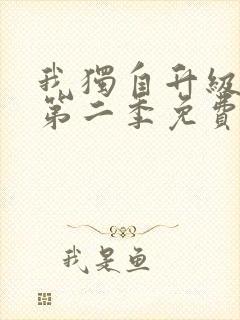 我獨自升級
第二季免費
我是鱼